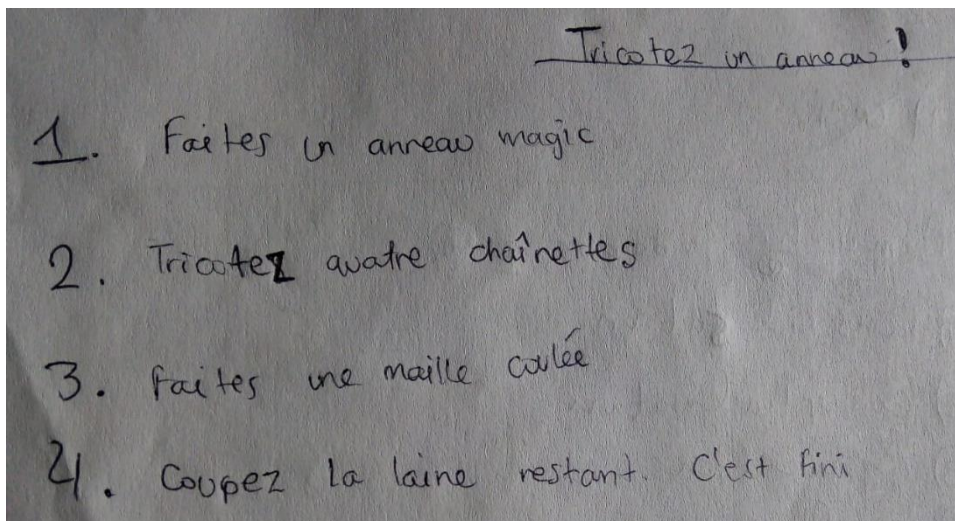 Tricotez un anneau!
1. Faites un anneau magic
2. Tricotez quatre chaînettes
3. Faites une maille coulée
4. Coupez la laine restant. C'est fini